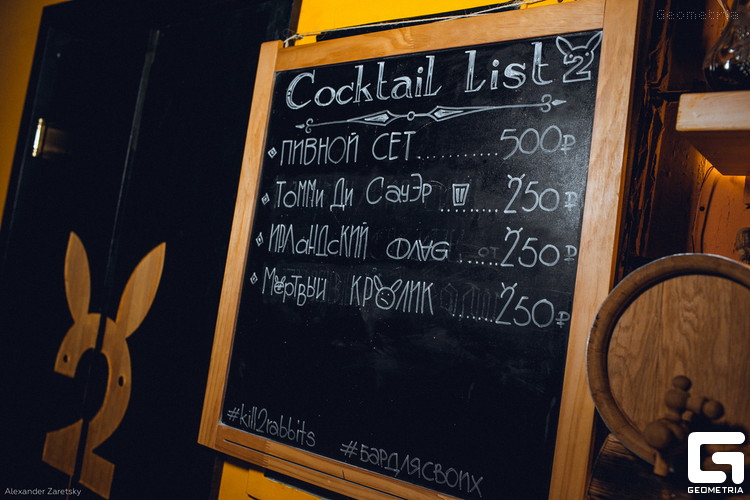 Geometria
Cocktail List 2
ПИВНОЙ СЕТ..........500₽
Томми Ди Сауэр ..........250₽
ИРЛаНДсКИЙ ФЛАG от......250₽
Мёртвый КРОЛИК ..........250₽
#kill2rabbits
#бардлясвоих
2
Alexander Zaretsky
G
GEOMETRIA